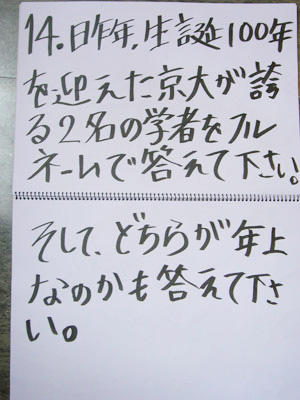 14.日昨年,生誕100年
を迎えた京大が誇
る2名の学者をフル
ネームで答えて下さい。
そして、どちらが年上
なのかも答えて下さ
い。